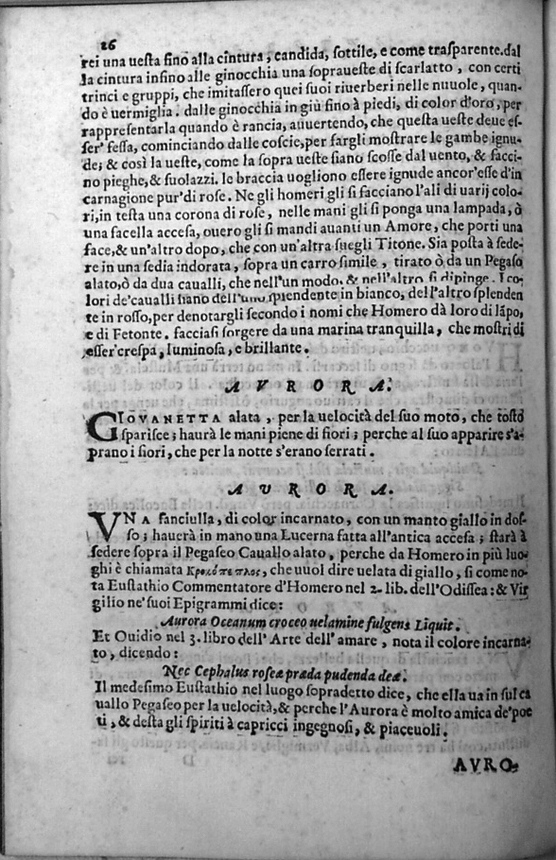 26
rei una uesta sino alla cintura, candida, sottile, e come trasparente. dal
la cintura insino alle ginocchia una soprauesta di scarlatto, con certi
trinci e gruppi, che imitassero quei suoi riuerberi nelle nuuole, quan-
do è uermiglia. dalle ginocchia in giù sino à piedi, di color d'oro, per
rappresentarla quando è rancia, auuertendo, che questa ueste deue es-
ser' fessa, cominciando dalle coscie, per fargli mostrare le gambe ignu-
de; & così la ueste, come la sopra ueste siano scosse dal uento, & facci-
no pieghe, & suolazzi. le braccia uogliono essere ignude ancor'esse d'in
carnagione pur' di rose. Ne gli homeri gli si facciano l'ali di uarij colo-
ri, in testa una corona di rose, nelle mani gli si ponga una lampada, ò
una facella accesa, ouero gli si mandi auanti un Amore, che porti una
face, & un'altro dopo, che con un'altra suegli Titone. Sia posta à sede-
re in una sedia indorata, sopra un carro simile, tirato ò da un Pegaso
alato, ò da dua caualli, che nell'un modo, & nell'altro si dipinge. I co-
lori de' caualli siano dell'uno splendente in bianco, dell'altro splenden
te in rosso, per denotargli secondo i nomi che Homero dà loro di lāpo,
e di Fetonte. facciasi sorgere da una marina tranquilla, che mostri di
esser crespa, luminosa, e brillante.
AVRORA.
GIOVANETTA alata, per la uelocità del suo moto, che tosto
sparisce; haurà le mani piene di fiori; perche al suo apparire s'a-
prano i fiori, che per la notte s'erano serrati.
AVRORA.
VNA fanciulla, di color incarnato, con un manto giallo in dos-
so; hauerà in mano una Lucerna fatta all'antica accesa; starà à
sedere sopra il Pegaseo Cauallo alato, perche da Homero in più luo-
ghi è chiamata Κροκόπεπλος, che uuol dire uelata di giallo, si come no-
ta Eustathio Commentatore d'Homero nel 2. lib. dell'Odissea: & Vir
gilio ne' suoi Epigrammi dice:
Aurora Oceanum croceo uelamine fulgens Liquit.
Et Ouidio nel 3. libro dell' Arte dell' amare, nota il colore incarna-
to, dicendo:
Nec Cephalus roseæ præda pudenda deæ.
Il medesimo Eustathio nel luogo sopradetto dice, che ella ua in sul ca
uallo Pegaseo per la uelocità, & perche l'Aurora è molto amica de' poe
ti, & desta gli spiriti à capricci ingegnosi, & piaceuoli.
AVRO-